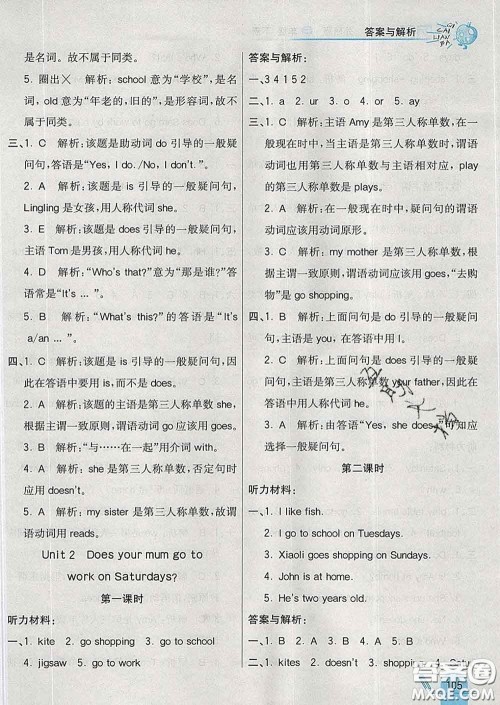 答案与解析
是名词。故不属于同类。
5. 圈出× 解析：school 意为“学校”，是
名词，old 意为“年老的，旧的”，是形容词，故不
属于同类。
三、1. C 解析：该题是助动词 do 引导的一般疑
问句，答语是“Yes, I do. /No, I don't.”。
2. A 解析：该题是 is 引导的一般疑问句，
Lingling 是女孩，用人称代词 she。
3. B 解析：该题是 does 引导的一般疑问
句，主语 Tom 是男孩，用人称代词 he。
4. D 解析：“Who's that?”意为“那是谁?”答
语常是“It's ... ”。
5. B 解析：“What's this?”的答语是“It's
a/an ... ”。
四、1. C 解析：该题是 is 引导的一般疑问句，因
此在答语中要用 is，而不是 does。
2. C 解析：该题的主语是第三人称单数，根
据主谓一致原则，谓语动词应该用 goes。
3. B 解析：“与……在一起”用介词 with。
4. A 解析：she 是第三人称单数，否定句时
应用 doesn't。
5. A 解析：my sister 是第三人称单数，故谓
语动词用 reads。
Unit 2 Does your mum go to
work on Saturdays?
第一课时
听力材料：
一、1. kite 2. go shopping 3. go to school
4. jigsaw 5. go to work
答案与解析：
一、3 4 1 5 2
二、1. a 2. ur 3. o 4. o 5. ay
三、1. C 解析：主语 Amy 是第三人称单数，谓
语动词也用第三人称单数与主语相对应，pl
ay 的第三人称单数是 plays。
2. A 解析：在一般现在时中，疑问句的谓语
动词应该用动词原形。
3. C 解析：my mother 是第三人称单数，根
据主谓一致原则，谓语动词应该用 goes，“去购
物”是 go shopping。
四、1. B 解析：上面问句是 do 引导的一般疑问
句，主语是 you，在答语中用 I。
2. B 解析：上面问句是 does 引导的一般疑
问句，主语是第三人称单数 your father，因此
在答语中用人称代词 he。
3. A 解析：由答语“Yes, she does.”可知应
选择一般疑问句。
第二课时
听力材料：
一、1. I like fish.
2. I go to school on Tuesdays.
3. Xiaoli goes shopping on Sundays.
4. John is at home.
5. He's two years old.
答案与解析：
一、2 1 3 5 4
二、1. kites 2. doesn't 3. shopping 4.
105